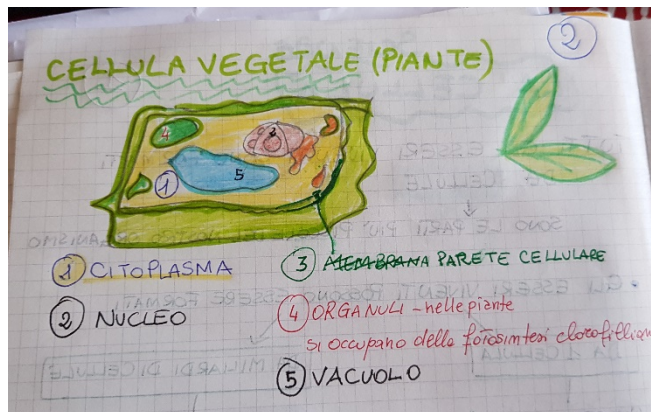 2
CELLULA VEGETALE (PIANTE)
4
2
1
5
1 CITOPLASMA
2 NUCLEO
3 MEMBRANA PARETE CELLULARE
4 ORGANULI - nelle piante
si occupano della fotosintesi clorofillian
5 VACUOLO